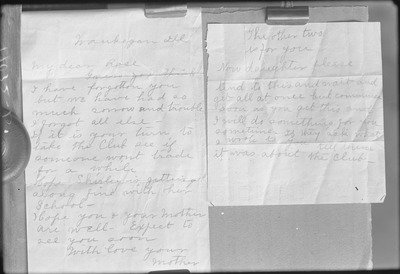 Waukegan Ill
My dear Rose
I have forgotten you
but we have had so
much sorrow and trouble
I forgot all else -
If it is your turn to
take the Club see if
someone wont trade
for a while
Shirley is getting
along fine with her
School -
I hope you & your Mother
are well - Expect to
see you soon
With love your
Mother
The other two
is for you -
Now daughter please
and do this and
all at once and
soon as you get this and
I will do something for you
sometime If they ask
I wrote to you
it was about the Club -